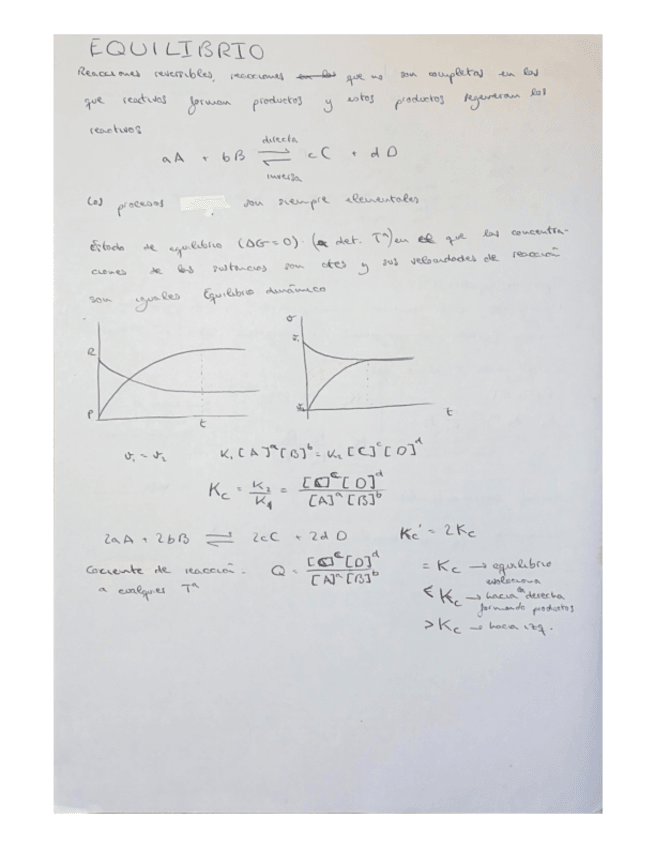 EQUILIBRIO
Reacciones reversibles, reacciones que no son completas en las
que reactivos forman productos y estos productos regeneran los
reactivos
directa
aA + bB ⇌ cC + dD
inversa
Los procesos son siempre elementales
Estado de equilibrio (ΔG = 0) (a det. Tª) en el que las concentra-
ciones de las sustancias son ctes y sus velocidades de reacción
son iguales Equilibrio dinámico
R
P
t
v
t
v₁ = v₂ K₁[A]ᵃ[B]ᵇ = K₂[C]ᶜ[D]ᵈ
Kc = K₂/K₁ = [C]ᶜ[D]ᵈ/[A]ᵃ[B]ᵇ
2aA + 2bB ⇌ 2cC + 2dD Kc' = 2Kc
Cociente de reacción. Q = [C]ᶜ[D]ᵈ/[A]ᵃ[B]ᵇ
a cualquier Tª
= Kc → equilibrio
evoluciona
< Kc → hacia derecha
formando productos
> Kc → hacia izq.